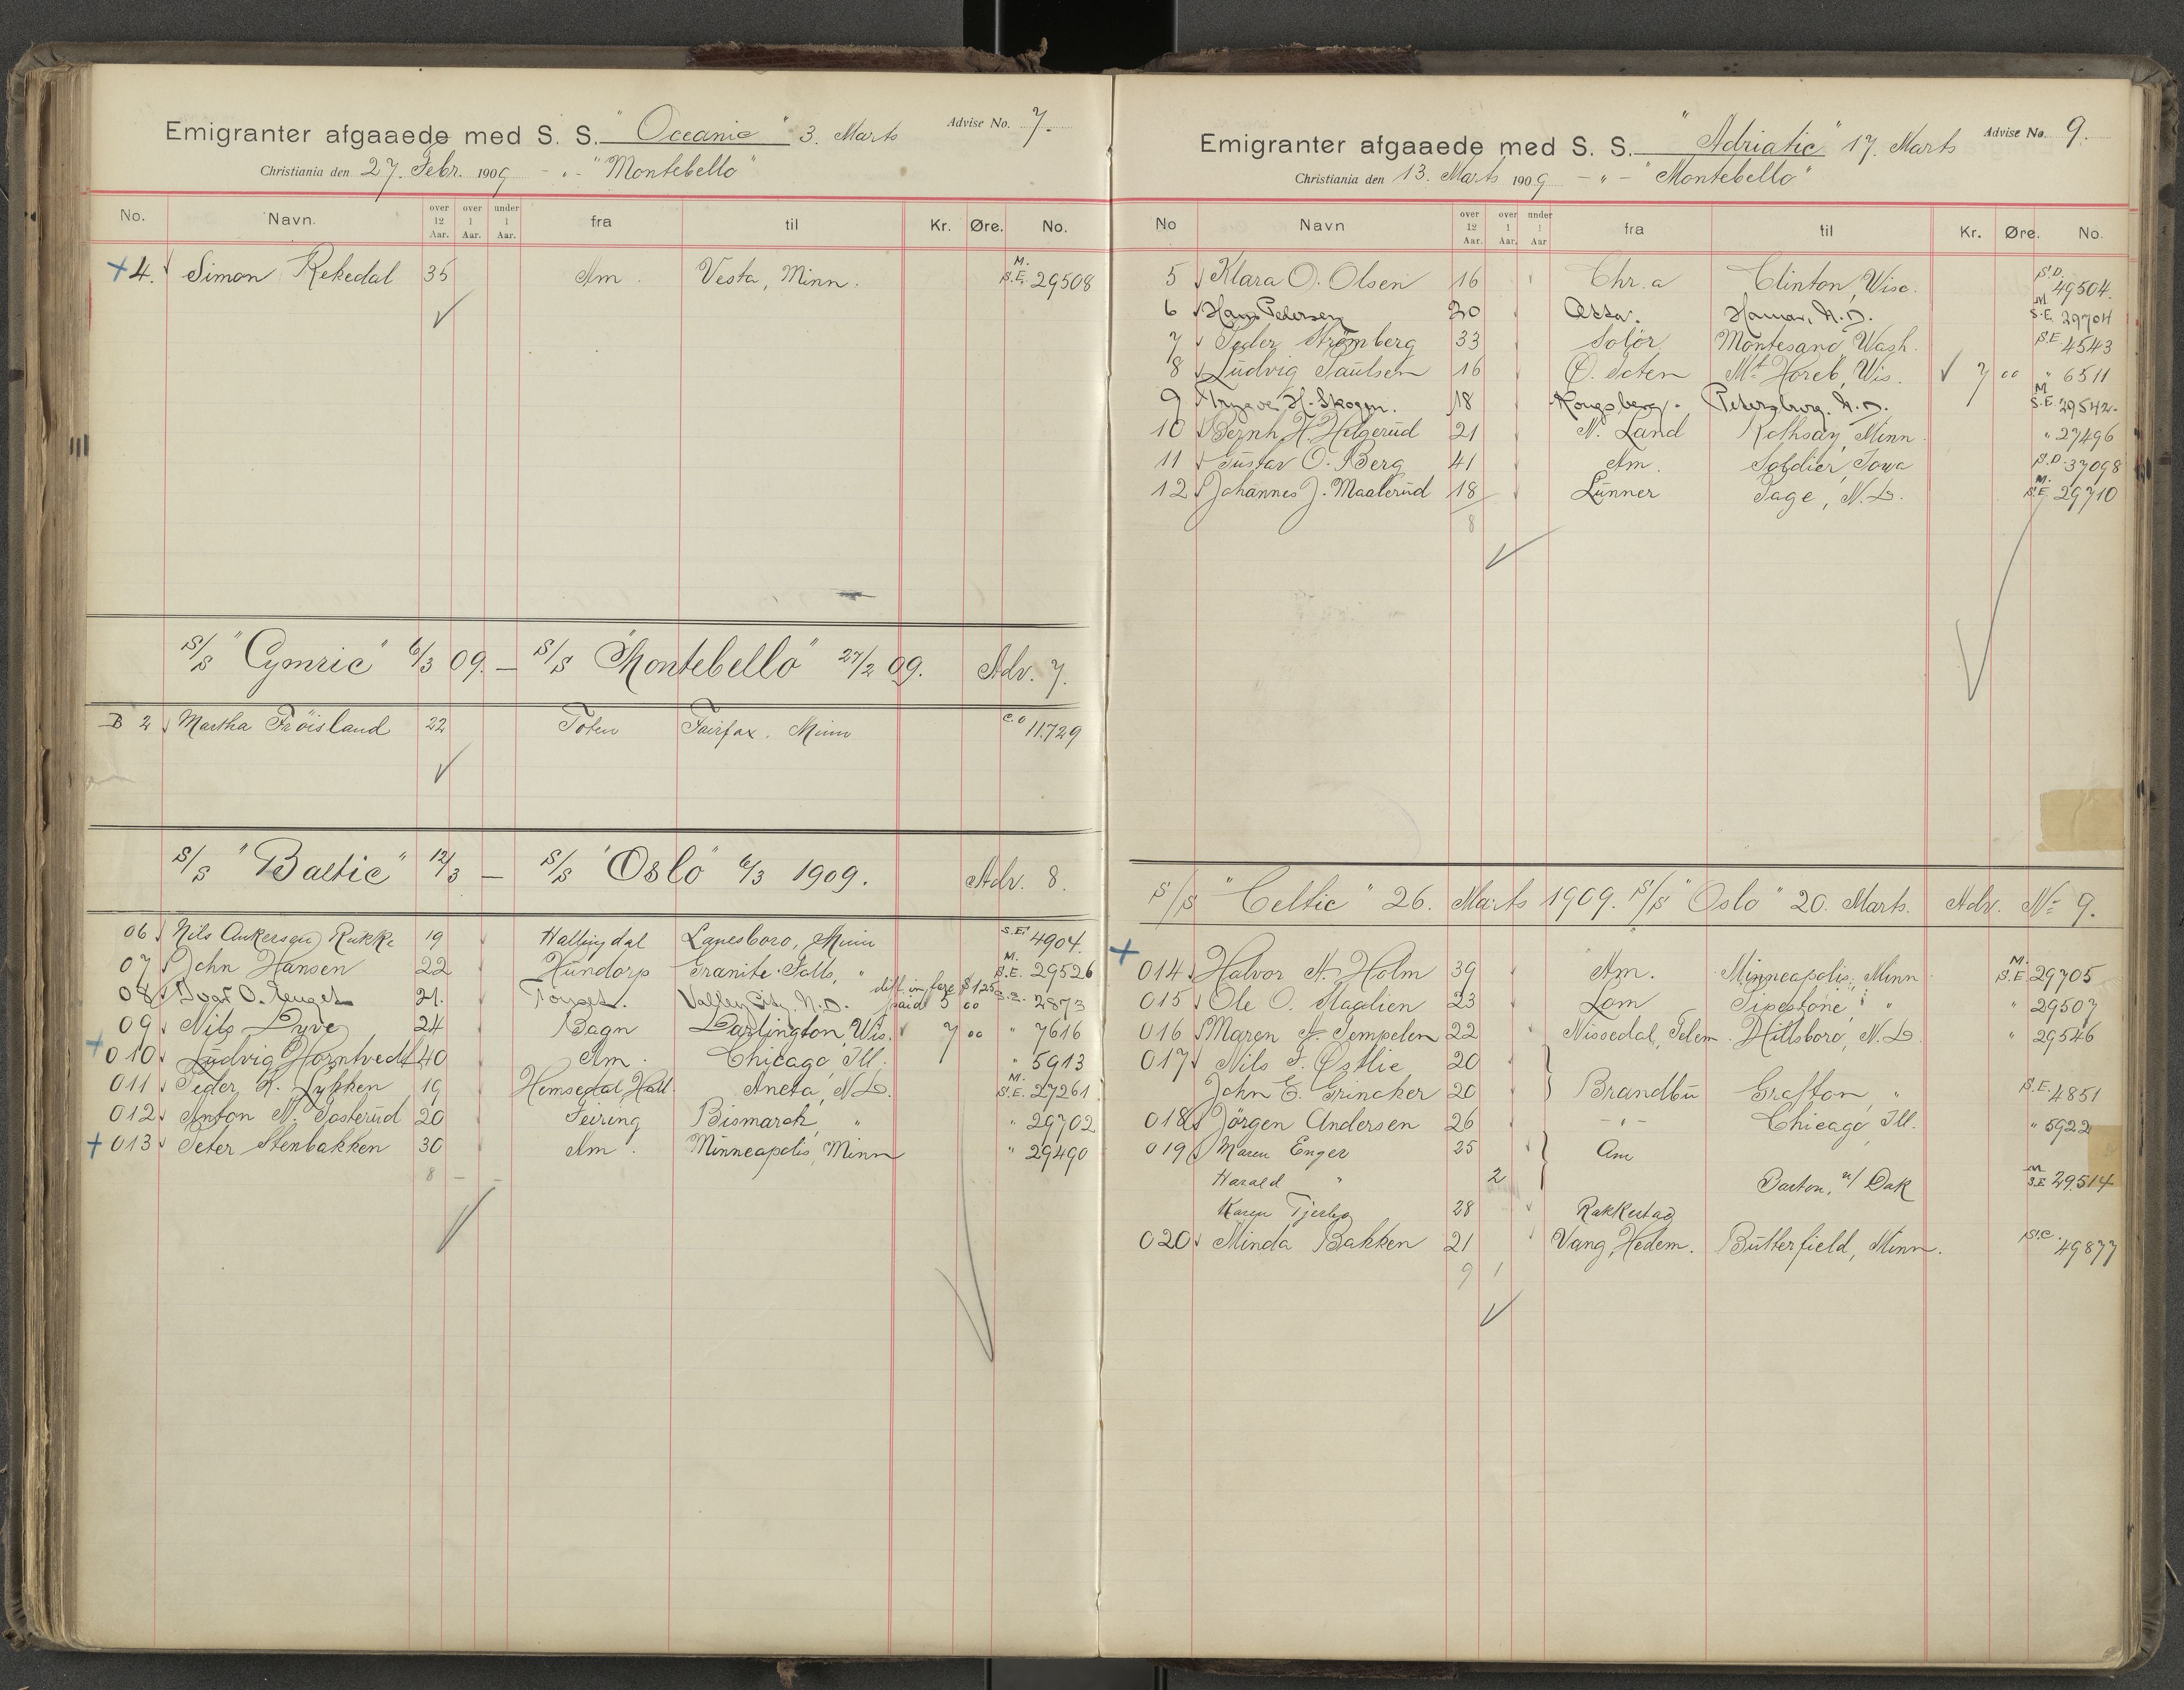 Emigranter afgaaede med S. S. "Oceanic" 3. Marts Advise No. 7.
Christiania den 27. Febr. 1909 - " - "Montebello"
No. Navn. over 12 Aar. over 1 Aar. under 1 Aar. fra til Kr. Øre. No.
+ 4. Simon Rekedal 35 Am. Vesta, Minn. M. S.E. 29508
S/S "Cymric" 6/3 09. – S/S "Montebello" 27/2 09. Adv. 7.
B 2 Martha Fröisland 22 Toten Fairfax. Minn C.O 11.729
S/S "Baltic" 12/3 – S/S "Oslo" 6/3 1909. Adv. 8.
06 Nils Ankersen Rukke 19 Hallingdal Lanesboro, Minn S.E. 4904.
07 John Hansen 22 Hundorp Granite Falls, " M. S.E. 29526
diff. in fare $ 1.25
08 Ivar O. 21. Tönset. Valley City, N.D. paid 5 00 S.E. 2873
09 Nils Dyve 24 Bagn Darlington, Wis. 7 00 " 7616
+ 010 Ludvig Horntvedt 40 Am. Chicago, Ill. " 5913
011 Peder K. Lykken 19 Hemsedal, Hall. Aneta, N.D. M. S.E. 27261
012 Anton N. Josterud 20 Feiring Bismarck, " " 29702
+ 013 Peter Stenbakken 30 Am. Minneapolis, Minn " 29490
8 – –
Emigranter afgaaede med S. S. "Adriatic" 17. Marts Advise No. 9.
Christiania den 13. Marts 1909 - " - "Montebello"
No Navn over 12 Aar. over 1 Aar. under 1 Aar fra til Kr. Øre. No.
5 Klara O. Olsen 16 Chr.a Clinton, Wisc. S.D. 49504.
6 Hans Pedersen 20 Hamar, N.D. M S.E. 29704
7 Peder Strömberg 33 Solör Montesano Wash. S.E. 4543
8 Ludvig Paulsen 16 Ö. Toten Mt Horeb, Wis. 7 00 " 6511
9 Trygve H. Skogen. 18 Kongsberg. Petersburg. N.D. M S.E. 29542.
10 Bernh. H. Helgerud 21 N. Land Rothsay, Minn. " 27496
11 Gustav O. Berg 41 Am. Soldier, Iowa S.D. 37098
12 Johannes J. Maalerud 18 Lunner Page, N.D. M. S.E. 29710
8
S/S "Celtic" 26. Marts 1909. S/S "Oslo" 20. Marts. Adv. No 9.
+ 014 Halvor A. Holm 39 Am. Minneapolis, Minn M. S.E. 29705
015 Ole O. Staalien 23 Lom Pipestone, " " 29507
016 Maren A. Tempelen 22 Nissedal, Telem. Hillsboro, N.D. " 29546
017 Nils J. Østlie 20
John E. Grinaker 20 } Brandbu Grafton, " S.E. 4851
018 Jörgen Andersen 26 - " - Chicago, Ill. " 5922
019 Maren Enger 25 } Am
Harald " 2 Barton, N/ Dak M S.E 29.514
Karen Tjerbo 28 Rakkestad
020 Minda Bakken 21 Vang, Hedem. Butterfield, Minn. S.C. 49877
9 1